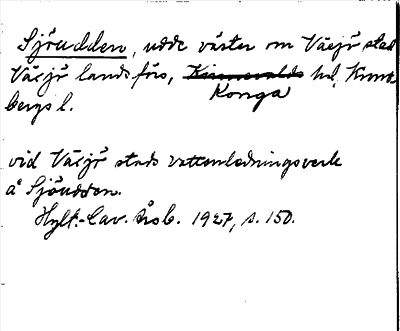 Sjöudden, udde väster om Växjö stad
Växjö landsförs, Kinnevalds hd, Krono-
Konga
bergs l.
vid Växjö stads vattenledningsverk
å Sjöudden.
Hylt.-Cav. Årsb. 1927, s. 150.